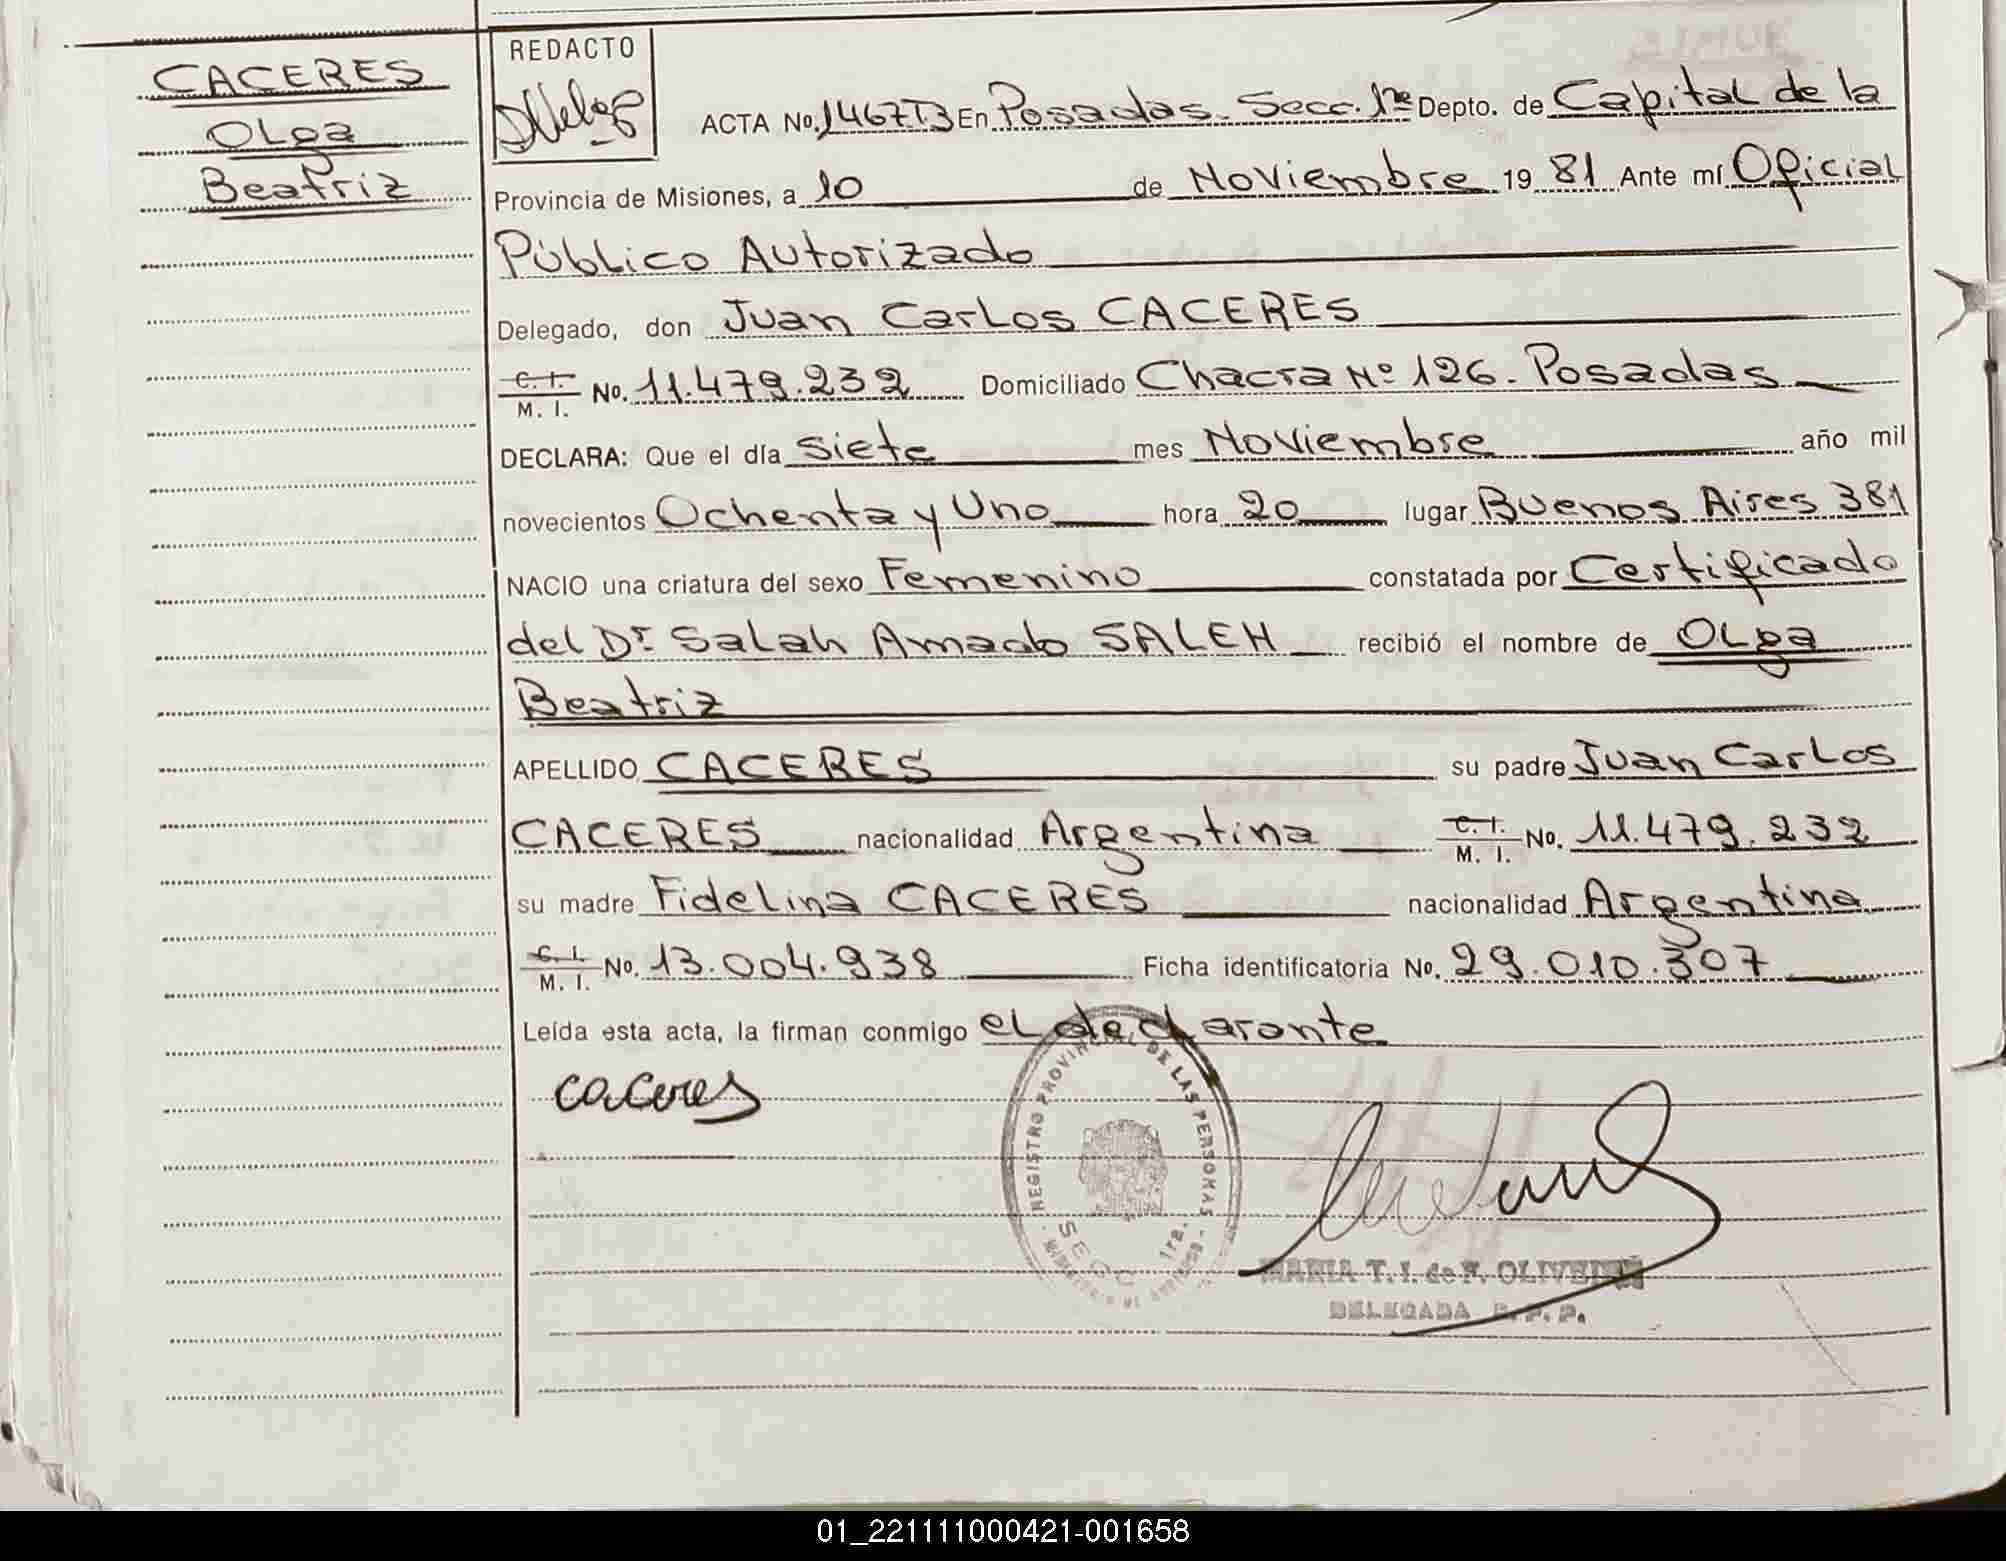 CACERES
Olga
Beatriz
REDACTO
ACTA No. 1467T3 En Posadas. Secc. 1ra Depto. de Capital de la
Provincia de Misiones, a 10 de Noviembre 19 81 Ante mí Oficial
Público Autorizado
Delegado, don Juan Carlos CACERES
C. I.
M. I. No. 11.479.232 Domiciliado Chacra Nº 126. Posadas
DECLARA: Que el día siete mes Noviembre año mil
novecientos Ochenta y Uno hora 20 lugar Buenos Aires 381
NACIO una criatura del sexo Femenino constatada por Certificado
del Dr Salah Amado SALEH recibió el nombre de Olga
Beatriz
APELLIDO CACERES su padre Juan Carlos
CACERES nacionalidad Argentina C. I. M. I. No. 11.479.232
su madre Fidelina CACERES nacionalidad Argentina
C. I.
M. I. No. 13.004.938 Ficha identificatoria No. 29.010.307
Leída esta acta, la firman conmigo el declarante
caceres
REGISTRO PROVINCIAL DE LAS PERSONAS
SECC 1ra.
MARIA T. I. de F. OLIVEIRA
DELEGADA R. P. P.
01_221111000421-001658